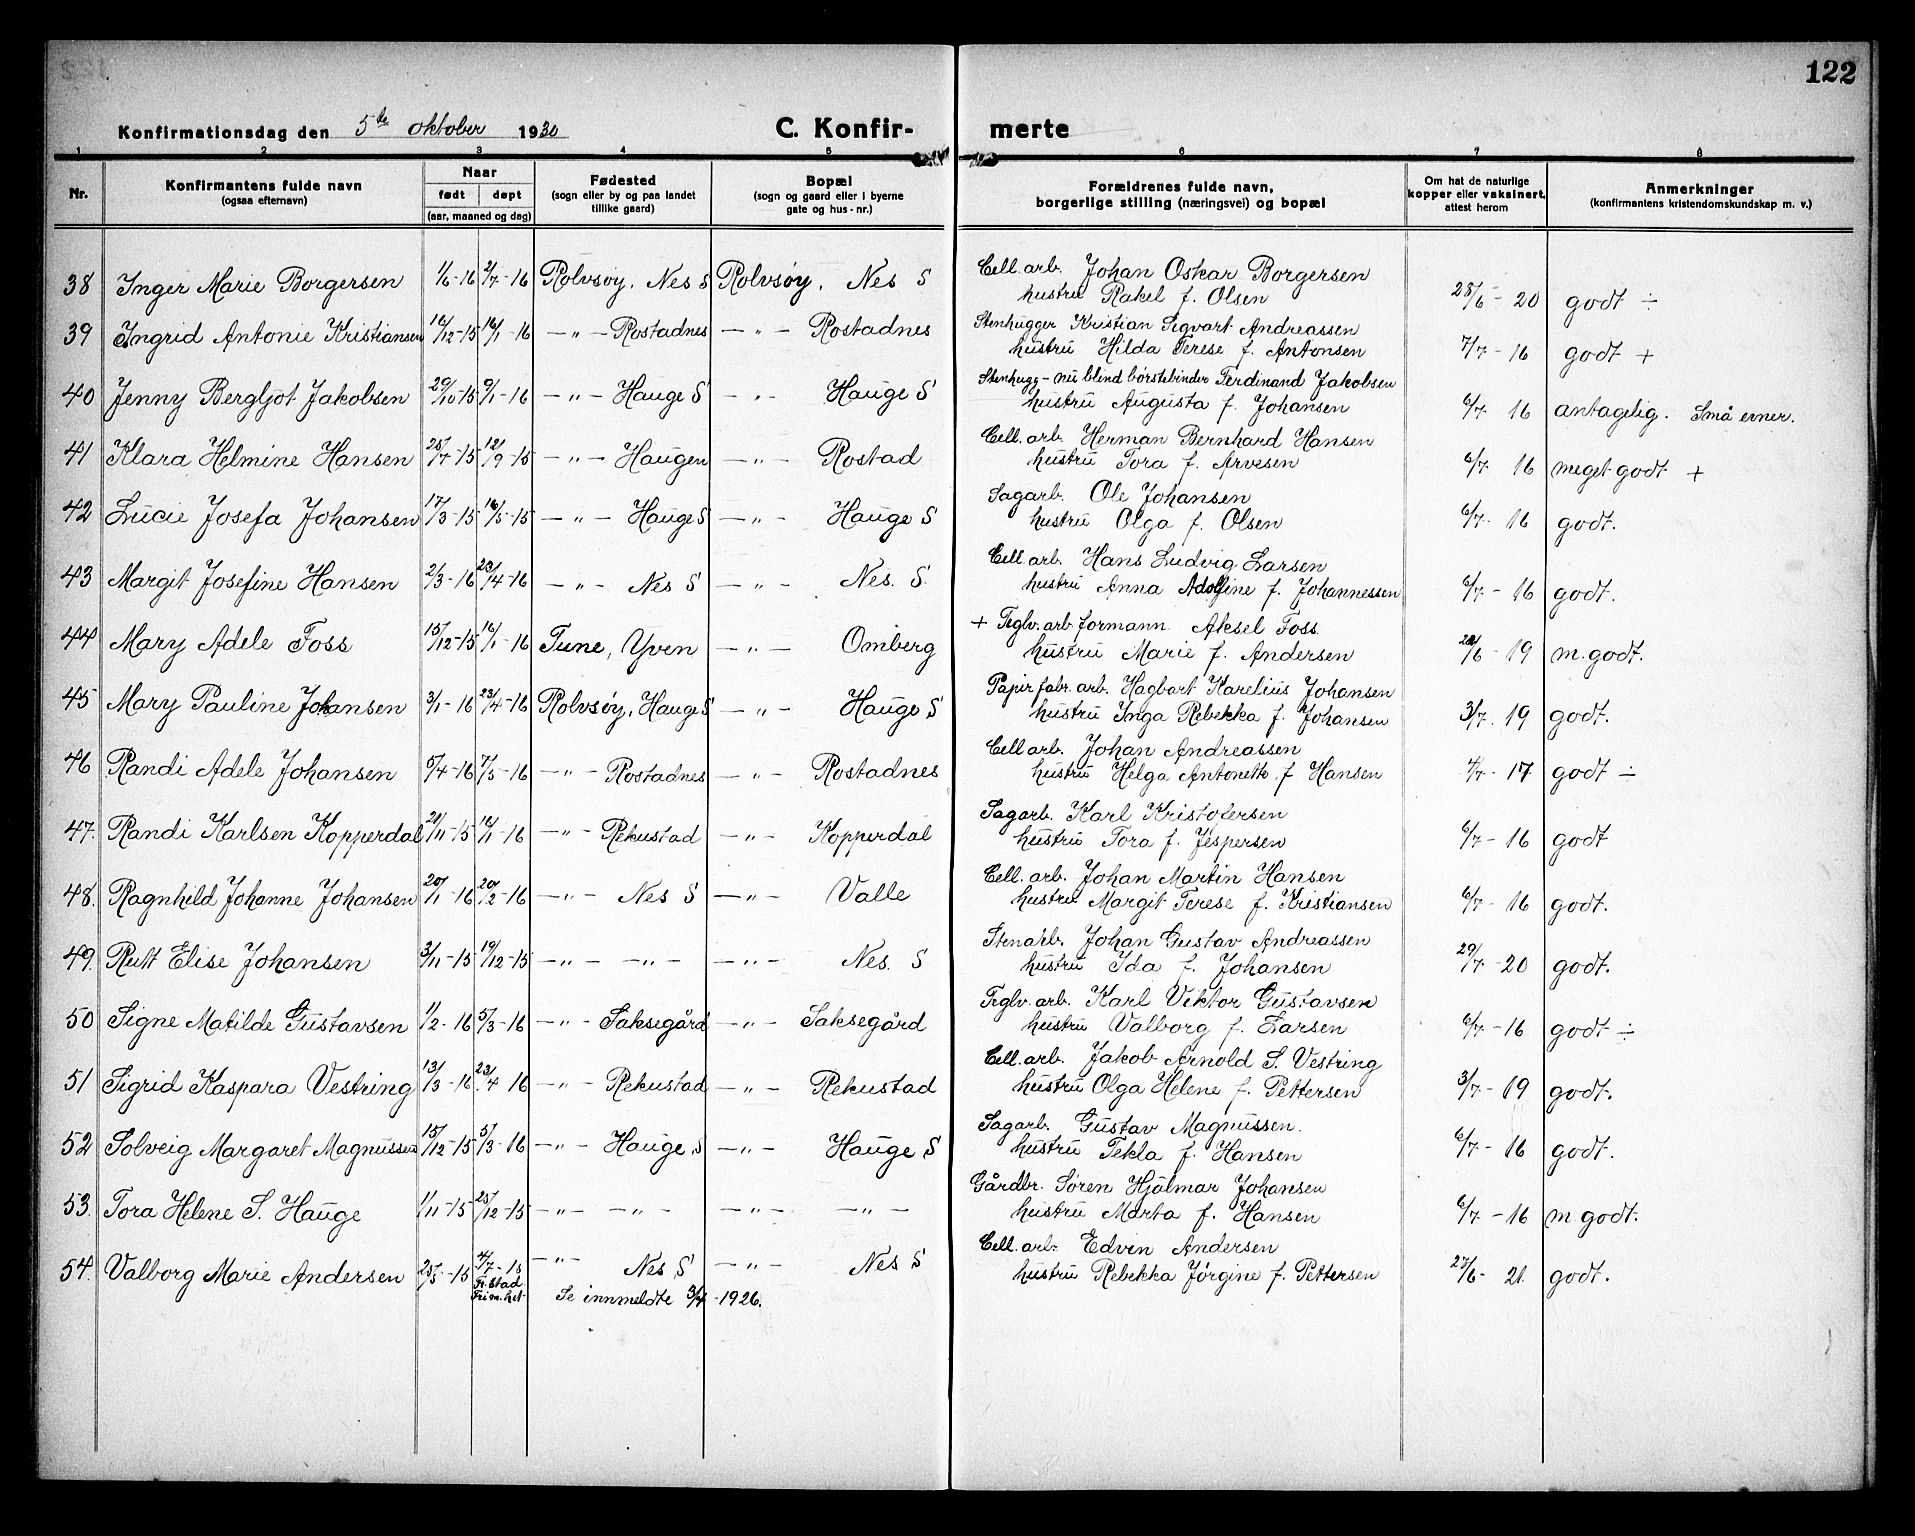 122
Konfirmationsdag den 5te oktober 1930 C. Konfir- merte
1 2 3 4 5 6 7 8
Nr. Konfirmantens fulde navn (ogsaa efternavn) Naar født døpt (aar, maaned og dag) Fødested (sogn eller by og paa landet tillike gaard) Bopæl (sogn og gaard eller i byerne gate og hus-nr.) Forældrenes fulde navn, borgerlige stilling (næringsvei) og bopæl Om hat de naturlige kopper eller vaksinert, attest herom Anmerkninger (konfirmantens kristendomskundskap m. v.)
Cell. arb. Johan Oskar Borgersen
38 Inger Marie Borgersen 1/6-16 2/7-16 Rolvsøy, Nes S Rolvsøy, Nes S hustru Rakel f. Olsen 28/6-20 godt ÷
Stenhugger Kristian Sigvart Andreassen
39 Ingrid Antonie Kristiansen 16/12-15 16/1-16 —"— Rostadnes —"— Rostadnes hustru Hilda Terese f. Antonsen 7/7-16 godt +
Stenhugg - nu blind børstebinder Ferdinand Jakobsen
40 Jenny Bergljot Jakobsen 29/10-15 9/1-16 —"— Hauge S —"— Hauge S hustru Augusta f. Johansen 6/7 16 antagelig. Små evner.
Cell. arb. Herman Bernhard Hansen
41 Klara Helmine Hansen 25/7-15 12/9-15 —"— Haugen —"— Rostad hustru Tora f. Arvesen 6/7 16 meget godt +
Sagarb. Ole Johansen
42 Lucie Josefa Johansen 17/3-15 16/5-15 —"— Hauge S —"— Hauge S hustru Olga f. Olsen 6/7- 16 godt.
Cell. arb. Hans Ludvig Larsen
43 Margit Josefine Hansen 2/3-16 23/4-16 —"— Nes S —"— Nes. S. hustru Anna Adolfine f. Johannessen 6/7-16 godt.
+ Teglv. arb. formann Aksel Foss.
44 Mary Adele Foss 15/12-15 16/1-16 Tune, Yven —"— Omberg hustru Marie f. Andersen 28/6-19 m. godt.
Papir fabr. arb. Hagbart Karelius Johansen
45 Mary Pauline Johansen 3/1-16 23/4-16 Rolvsøy, Hauge S —"— Hauge S hustru Inga Rebekka f. Johansen 3/7. 19 godt.
Cell arb. Johan Andreassen
46 Randi Adele Johansen 5/4-16 7/5-16 —"— Rostadnes —"— Rostadnes hustru Helga Antonette f Hansen 4/7-17 godt ÷
Sagarb. Karl Kristofersen
47. Randi Karlsen Kopperdal 21/11-15 16/1-16 —"— Rekustad —"— Kopperdal hustru Tora f. Jespersen 6/7-16 godt
Cell. arb. Johan Martin Hansen
48. Ragnhild Johanne Johansen 20/1-16 20/2-16 —"— Nes S —"— Valle hustru Margit Terese f. Kristiansen 6/7-16 godt.
Stenarb. Johan Gustav Andreassen
49. Rutt Elise Johansen 3/11-15 19/12-15 —"— —"— —"— Nes. S hustru Ida f. Johansen 29/7-20 godt.
Teglv. arb. Karl Viktor Gustavsen
50 Signe Matilde Gustavsen 1/2-16 5/3-16 —"— Saksegård —"— Saksegård hustru Valborg f. Larsen 6/7-16 godt ÷
Cell. arb. Jakob Arnold S. Vestring
51 Sigrid Kaspara Vestring 13/3-16 23/4 16 —"— Rekustad —"— Rekustad hustru Olga Helene f. Pettersen 3/7-19 godt.
Sagarb. Gustav Magnussen.
52 Solveig Margaret Magnussen 15/12-15 5/3-16 —"— Hauge S —"— Hauge S hustru Tekla f. Hansen 6/7-16 godt.
Gårdbr. Søren Hjalmar Johansen
53. Tora Helene S. Hauge 1/11-15 25/12-15 —"— —"— —"— —"— hustru Marta f. Hansen 6/7-16 m godt.
Cell. arb. Edvin Andersen
54. Valborg Marie Andersen 25/5-15 4/7-15 —"— Nes S —"— Nes S hustru Rebekka Jørgine f. Pettersen 27/6-21. godt.
Fr.stad
Frim.het Se innmeldte 3/4-1926.